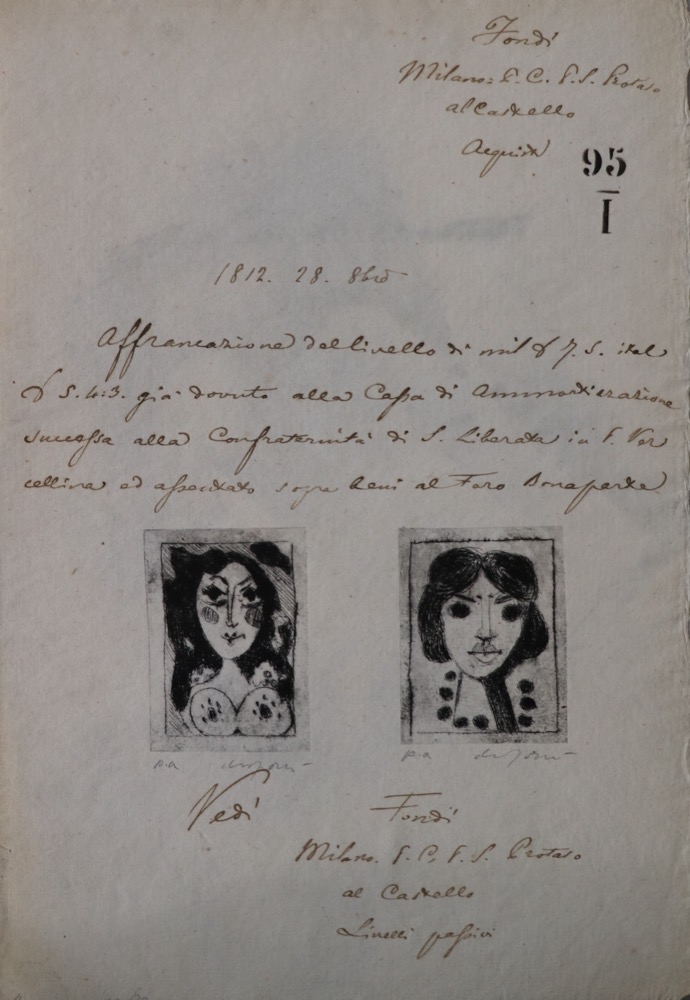 Fondi
Milano: P. C. P. S. Protaso
al Castello
Acquisti
95
I
1812. 28. 8bre
Affrancazione del livello di mil £ 7. S. ital
£ 5. 4:3. già dovuto alla Cassa di Ammortizazione
successa alla Confraternità di S. Liberata in P. Ver
cellina ed assicurato sopra beni al Foro Bonaparte
p.a
p.a
Vedi
Fondi
Milano. P. C. P. S. Protaso
al Castello
Livelli passivi